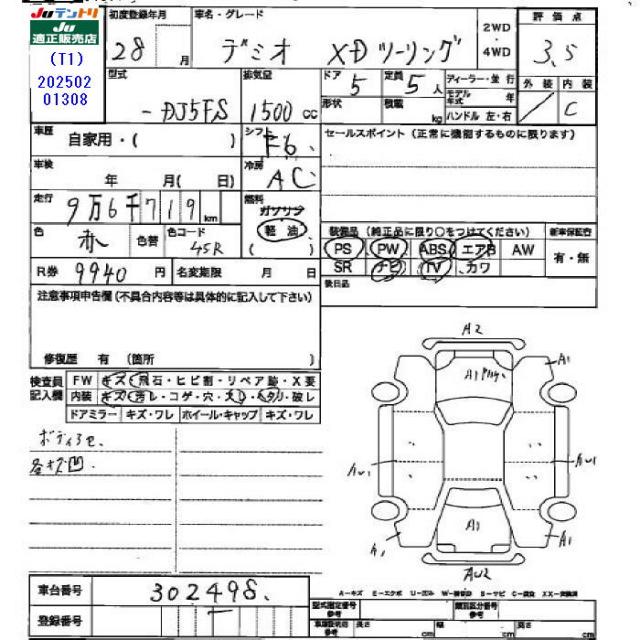 Juテントリ
Ju
適正販売店
(T1)
202502
01308
初度登録年月
28 月
車名・グレード
デミオ XDツーリング
2WD
・
4WD
評価点
3.5
外装 内装
C
型式
-DJ5FS
排気量
1500 cc
ドア
5
定員
5人
形状
積載
kg
ディーラー・並行
モデル年式 年
ハンドル 左・右
車歴
自家用・( )
シフト
F6
セールスポイント (正常に機能するものに限ります)
車検
年 月( 日)
冷房
AC
走行
9万6千719 km
燃料
ガソリン
軽油
( )
色
赤
色替
色コード
45R
装備品 (純正品に限り○をつけてください)
新車保証書
PS PW ABS エアB AW
有・無
SR ナビ TV カワ
R券 9940 円
名変期限 月 日
後日品
注意事項申告欄(不具合内容等は具体的に記入して下さい)
修復歴 有 (箇所 )
検査員
記入欄
FW キズ・飛石・ヒビ割・リペア跡・X要
内装 キズ・汚レ・コゲ・穴・スレ・ヘタリ・破レ
ドアミラー キズ・ワレ ホイール・キャップ キズ・ワレ
ボディ
各キズ凹.
A2
A1
A1
AW1
AW1
A1
A1
A1
AW2
車台番号
302498
登録番号
A-キズ E-エクボ U-凹み W-補修跡 S-サビ C-腐食 XX-交換済
型式指定番号
参考
類別区分番号
参考
長さ cm
幅 cm
高さ cm